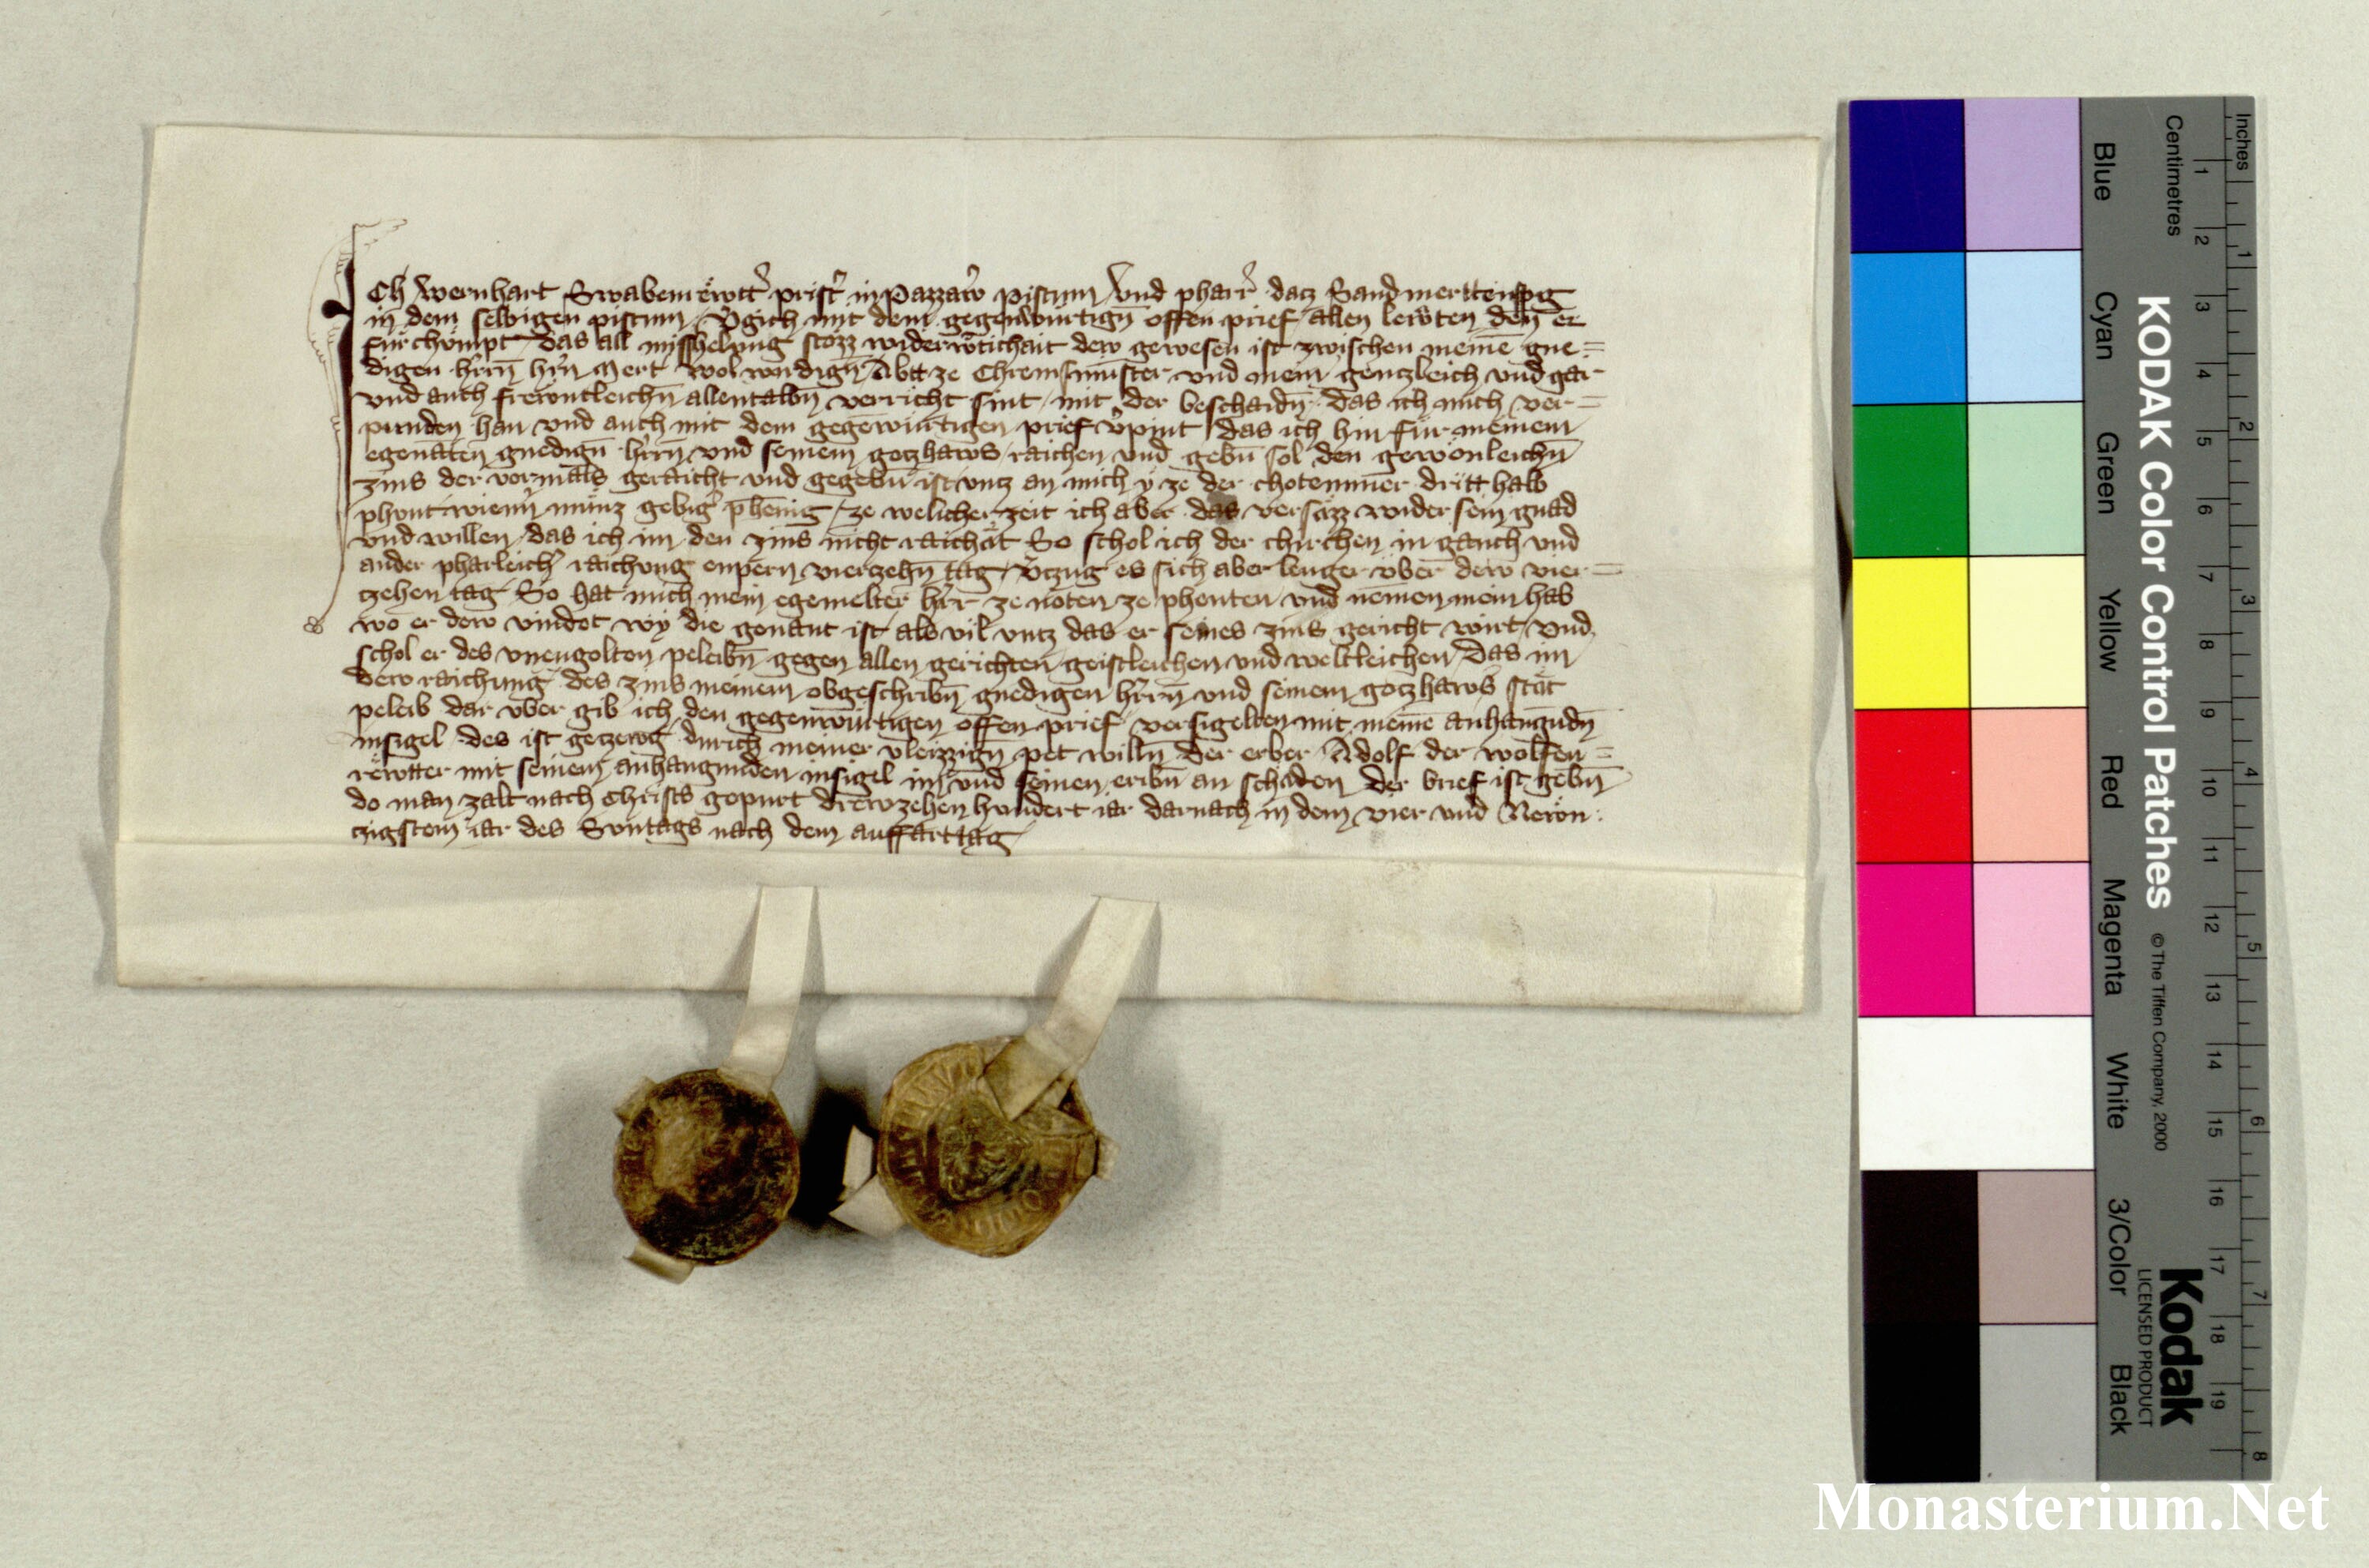 Ich Wernhart Swabenrëwtt' prist' in Pazzaw' pistum vnd pharr' datz Sand merttenspg
in dem selbigen pistum v'gich mit dem gegenwürtign̄ offen prief allen lewten den er
fürchümpt das all misshelung stözz widerwͤtichait dew gewesen ist zwischen meinē gne=
digen h'rrn̄ h'rn Mert wolwirdign̄ Abtt ze Chremsmünster vnd mein gentzleich vnd gar
vnd auch frewntleichn̄ allentalbn̄ verricht sint mit der beschaidn̄ das ich mich ver=
punden han vnd auch mit dem gegēwürtigen prief v'pint das ich hin für meinem
egenāten gnedign̄ h'rrn̄ vnd seinem gotzhaws raichen vnd gebn̄ sol den gewönleichn̄
zins der vormāls geraicht vnd gegebn̄ ist vntz an mich y ze der chotemmer dritthalb
phunt wienn'r münz gebig' phenig ze welicher zeit ich aber das versäzz wider sein gnad
vnd willen das ich im den zins nicht raichät So schol ich der chirchen in gänch vnd
ander pharleich' raichung enpern vierzehn̄ tag v'tzüg es sich aber lenger vber dew vier=
tzehen tag So hat mich mein egemelter h'rr ze nöten ze phenten vnd nemen mein hab
wo er dew vindet wy die genant ist als vil vntz das er seines zins gericht wirt vnd
schol er des vnengolten peleibn̄ gegen allen gerichten geistleichen vnd weltleichen Das im
dew raichung des zins meinem obgeschribn̄ gnedigen h'rrn̄ vnd seinem gotzhaws stät
peleib dar vber gib ich den gegenwürtigen offen prief versigelten mit meinē anhangudn̄
insigel des ist getzewg durich meiner vleizzign̄ pet willn der erber Adolf der wolfen=
rëwtter mit seinem anhangunden insigel im vnd seinen eribn̄ an schaden Der brief ist gebn̄
do man zalt nach Christs gepurt drewzehen hundert iar darnach in dem vier vnd Newn:
tzigstem iar des Suntags nach dem auffarttag
Inches
Centimetres
1 2 3 4 5 6 7 8
1 2 3 4 5 6 7 8 9 10 11 12 13 14 15 16 17 18 19
KODAK Color Control Patches
© The Tiffen Company, 2000
Kodak
LICENSED PRODUCT
Blue
Cyan
Green
Yellow
Red
Magenta
White
3/Color
Black
Monasterium.Net